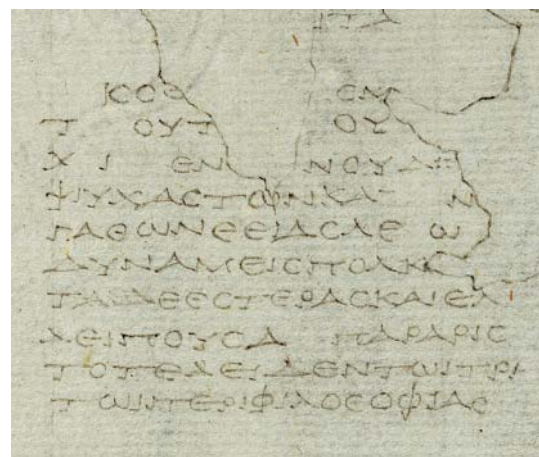 ΚΟΘ ΟΜ
Τ ΟΥΤ ΟΥ
Χ Ι ΕΝ ΝΟΥΔ
ΨΥΧΑϹΤΩΝΚΑ Ν
ΓΑΘΩΝΘΕΙΑϹΛΕ Ω
ΔΥΝΑΜΕΙϹΠΟΛΚ
ΤΑΔΕΕϹΤΕΡΑϹΚΑΙΕΛ
ΛΕΙΠΟΥϹΑ ΠΑΡΑΡΙϹ
ΤΟΤΕΛΕΙΔΕΝΤΩΙΤΡΙ
ΤΩΙΠΕΡΙΦΙΛΟϹΟΦΙΑϹ